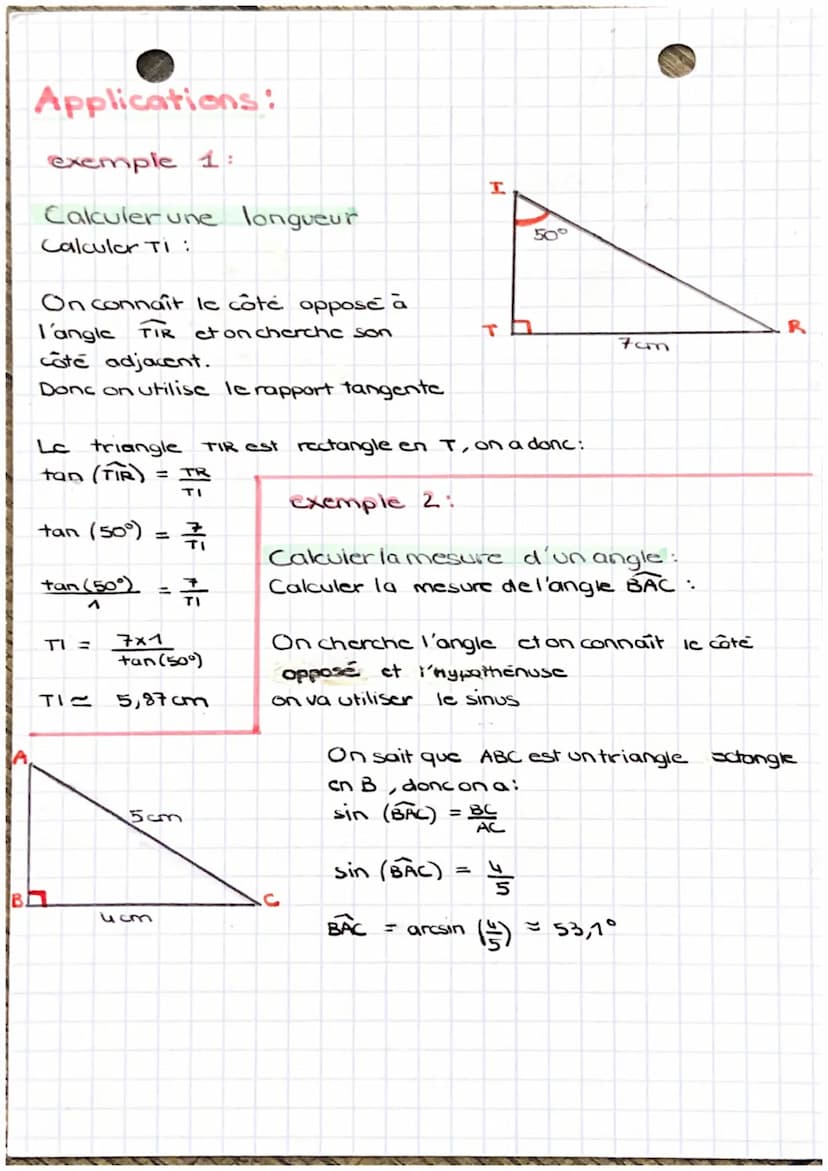 Applications:
exemple 1:
Calculer une longueur
Calculer TI :
On connaît le côté opposé à
l'angle T̂IR et on cherche son
côté adjacent.
Donc on utilise le rapport tangente
Le triangle TIR est rectangle en T, on a donc:
tan (T̂IR) = TR/TI
tan (50°) = 7/TI
tan(50°)/1 = 7/TI
TI = 7×1/tan(50°)
TI ≃ 5,87 cm
I
50°
T
R
7cm
exemple 2:
Calculer la mesure d'un angle:
Calculer la mesure de l'angle B̂AC :
On cherche l'angle et on connaît le côté
opposé et l'hypothénuse
on va utiliser le sinus
A
5cm
B
C
4cm
On sait que ABC est un triangle ectangle
en B, donc on a:
sin (B̂AC) = BC/AC
sin (B̂AC) = 4/5
B̂AC = arcsin (4/5) ≈ 53,1°